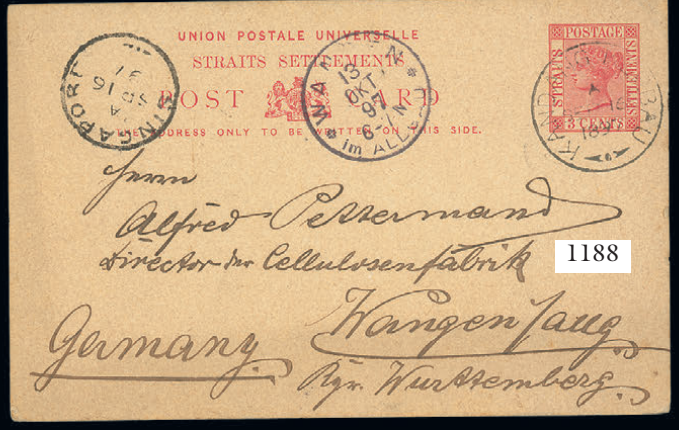 UNION POSTALE UNIVERSELLE
STRAITS SETTLEMENTS
POST CARD
THE ADDRESS ONLY TO BE WRITTEN ON THIS SIDE.
STRAITS
POSTAGE
SETTLEMENTS
3 CENTS
SINGAPORE
A
SP 16
97
WANGEN
13
OKT
97
6-7N
im ALLG
KANDANG
A
16
1897
Herrn
Alfred Pettermand
Director der Cellulosenfabrik
1188
Wangen
Germany.
Kgr. Wurttemberg.